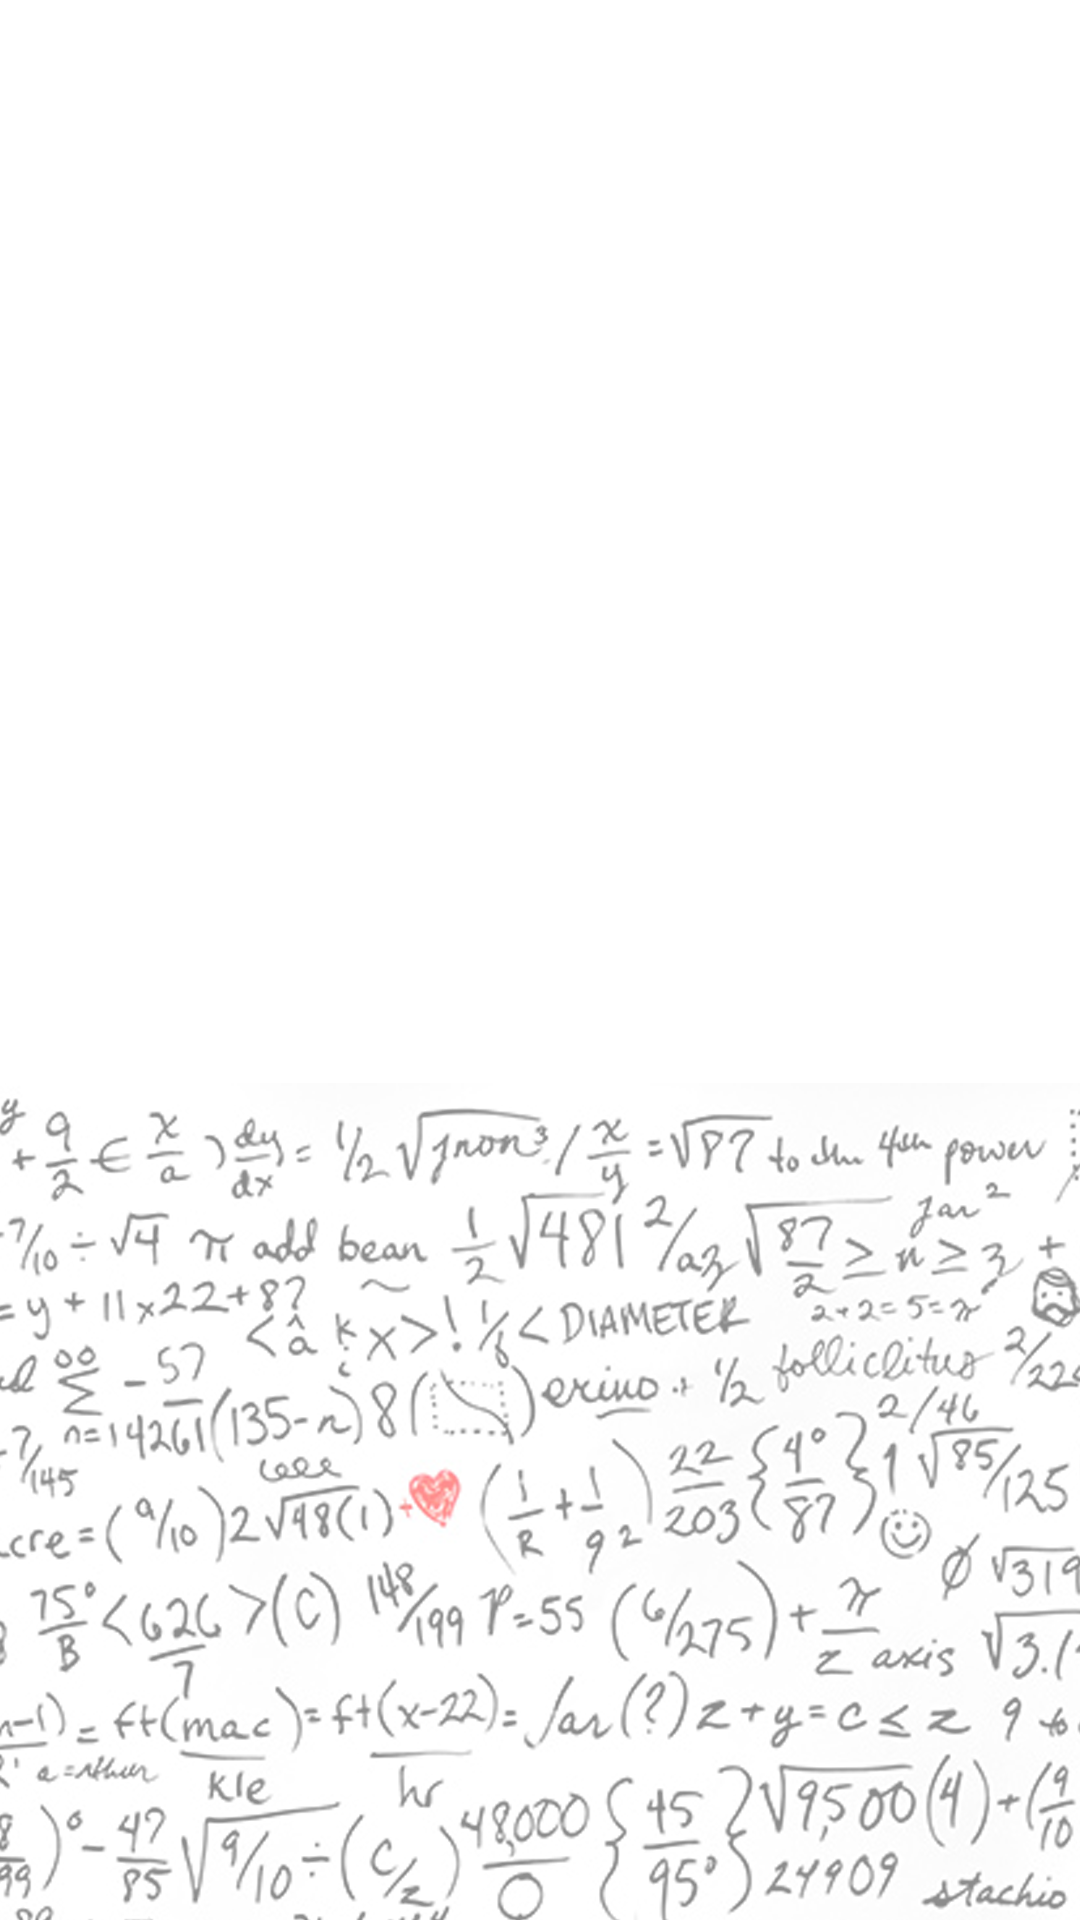 y + 9/2 ∈ x/a ) dy/dx = 1/2 √ / x/y = √87 to the 4th power
7/10 ÷ √4 π add bean 1/2 √481 2/az √87/2 ≥ n ≥ 3 + jar²
= y + 11 x 22 + 8? 2+2=5=π
< â k x >! 1/8 < DIAMETER
∞ Σ n=1 -57/4261 (135-n) 8 ( ) erino + 1/2 folliclitus 2/22
7/145 2/46
cre = (9/10) 2 √48(1) + (1/R + 1/9²) 22/203 {4°/87} 1 √85/125
75°/B < 626/7 > (C) 148/199 P=55 (6/275) + π/z axis Ø √319 √3.1
n-1) = ft(mac/kle) = ft(x-22/hr) = (?) z + y = c ≤ z 9 to
a =
8/99)° - 47/85 √9/10 ÷ (c/z) 48,000/0 {45/95°} √9,500 (4) + (9/10
24909 stachio